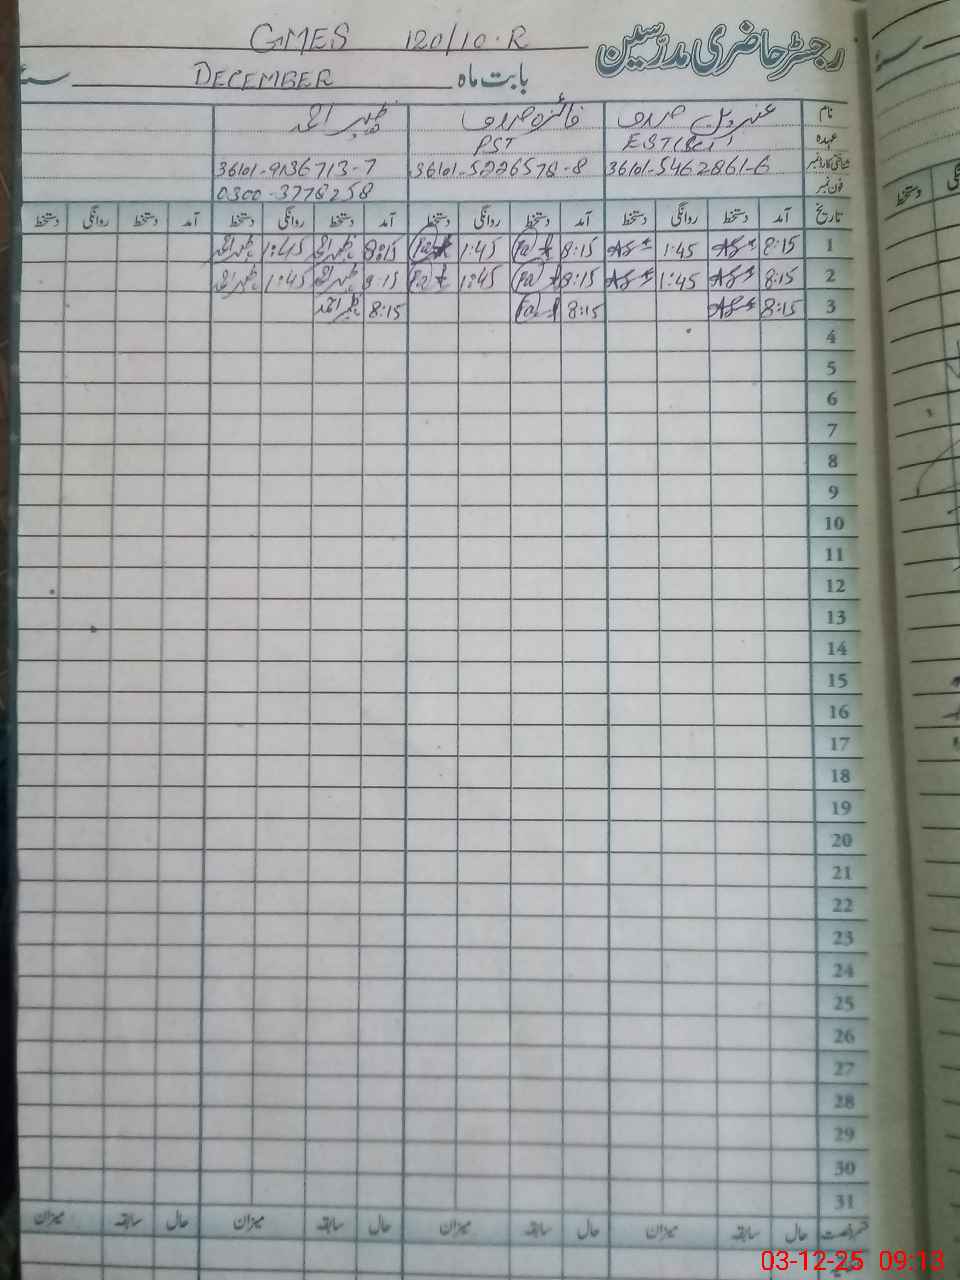 GMES 120/10.R رجسٹر حاضری مدرسین
بابت ماہ DECEMBER
نام عندلیب صدف فائزہ صدف ظہیر احمد
عہدہ EST(Sci) PST
شناختی کارڈ نمبر 36101-5462861-6 36101-5226578-8 36101-9136713-7
فون نمبر 0300-3778258
تاریخ آمد دستخط روانگی دستخط آمد دستخط روانگی دستخط آمد دستخط روانگی دستخط آمد دستخط روانگی دستخط
1 8:15 1:45 8:15 1:45 8:15 ظہیر احمد 1:45 ظہیر احمد
2 8:15 1:45 8:15 1:45 8:15 ظہیر احمد 1:45 ظہیر احمد
3 8:15 8:15 8:15 ظہیر احمد
4
5
6
7
8
9
10
11
12
13
14
15
16
17
18
19
20
21
22
23
24
25
26
27
28
29
30
31
حال سابقہ میزان حال سابقہ میزان حال سابقہ میزان حال سابقہ میزان
03-12-25 09:13
دستخط